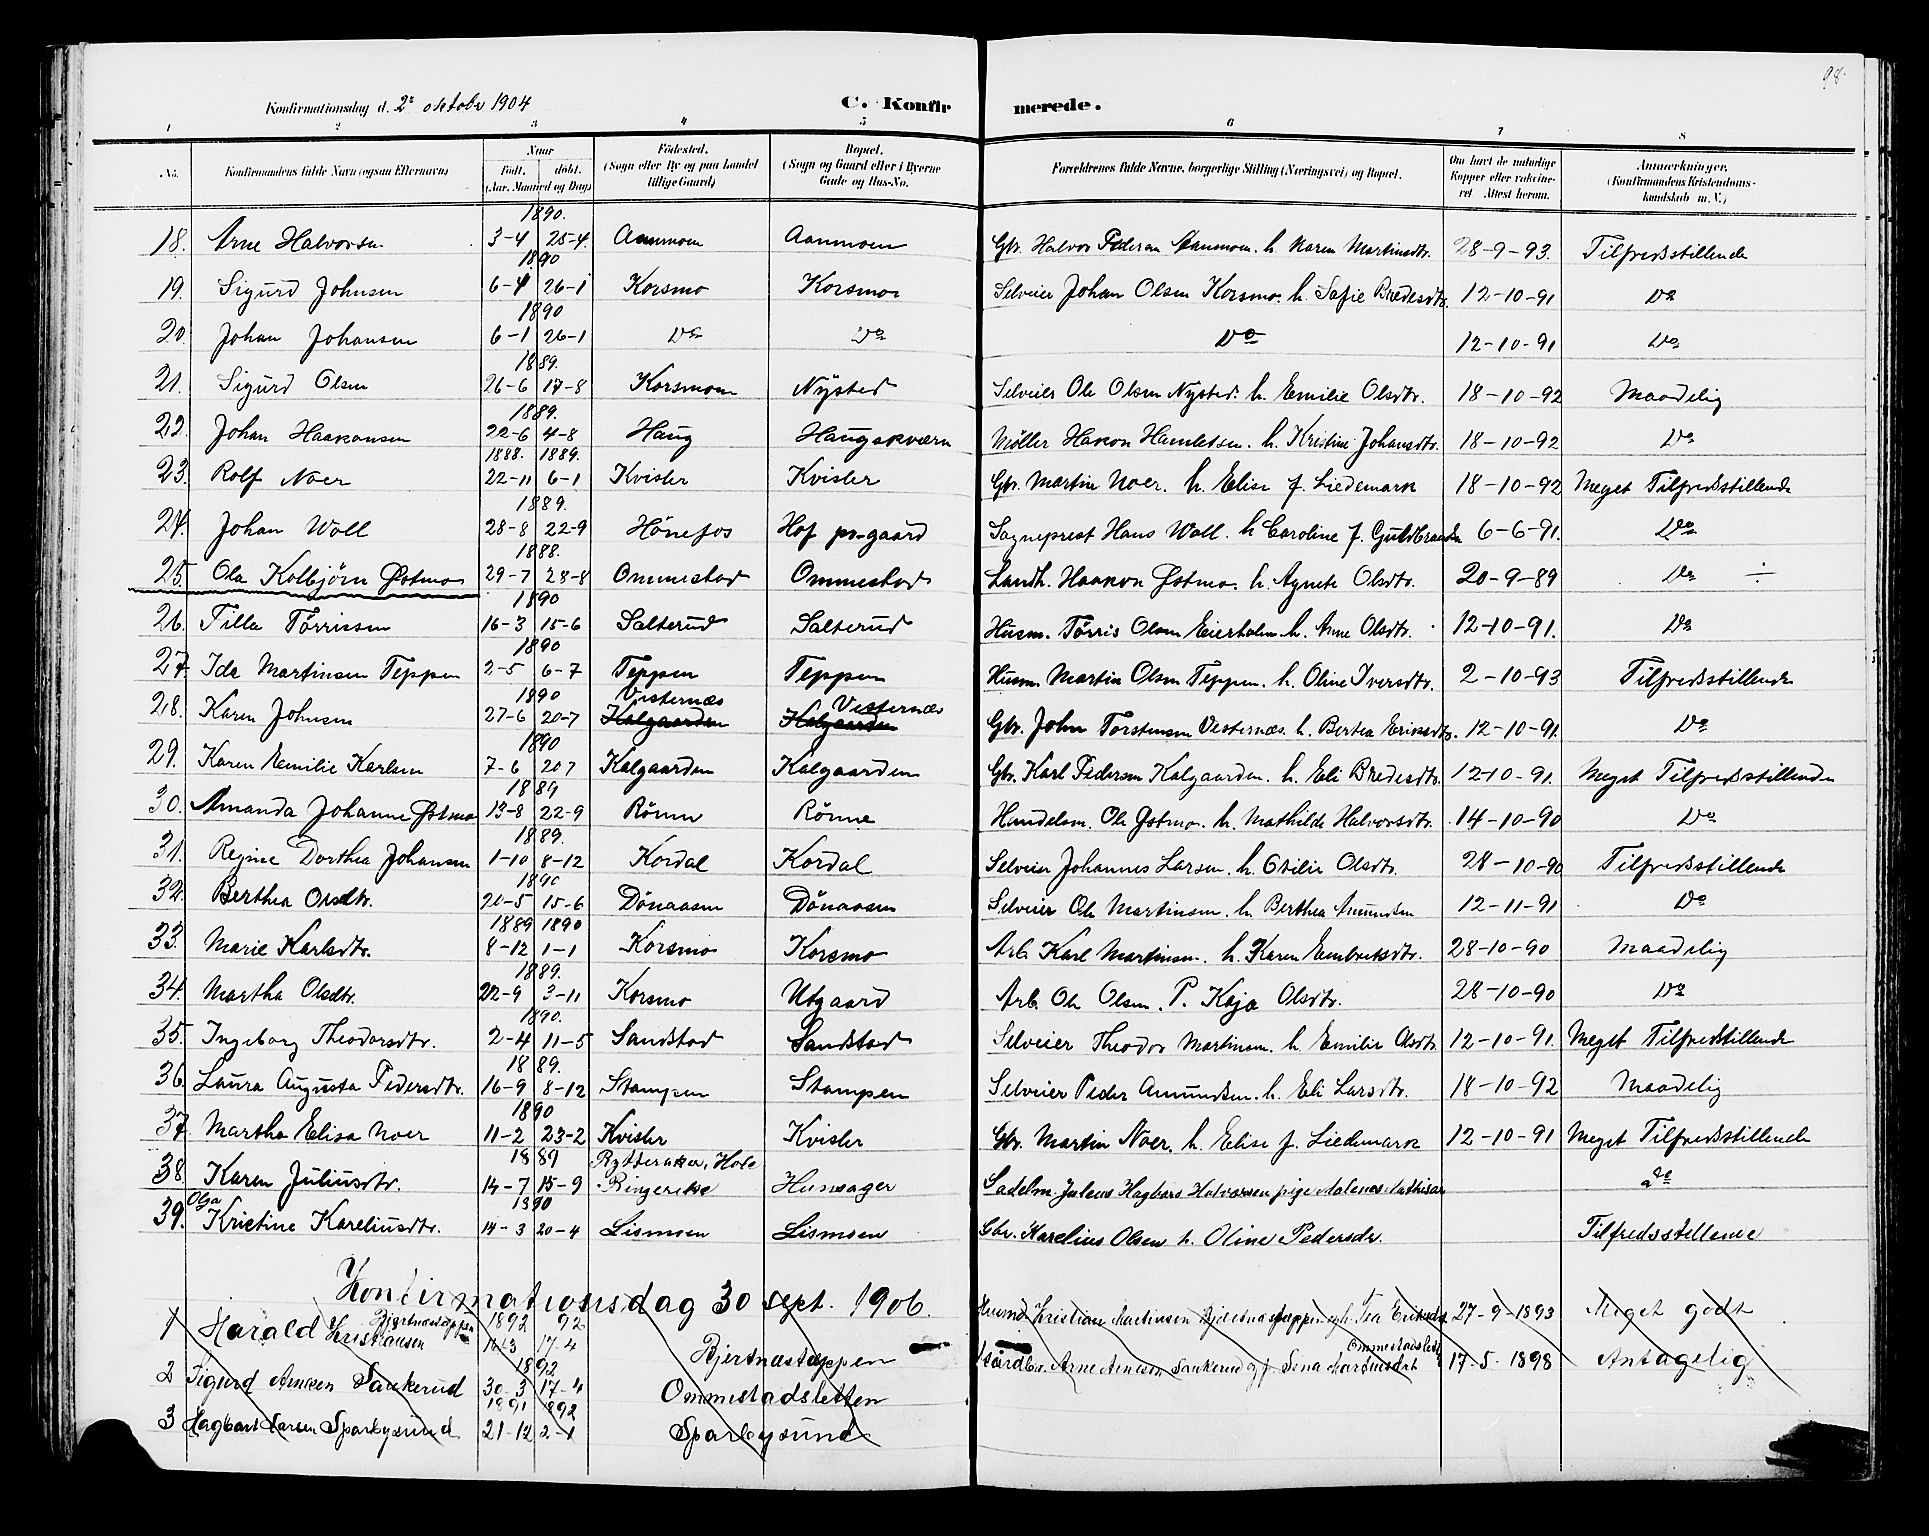 98.
Konfirmationsdag d. 2den oktober 1904
C. Konfir merede.
1 2 3 4 5 6 7 8
No. Konfirmandens fulde Navn (ogsaa Efternavn) Naar Født. døbt. (Aar. Maaned og Dag) Fødested. (Sogn eller By og paa Landet tillige Gaard) Bopæl. (Sogn og Gaard eller i Byerne Gade og Hus-No. Forældrenes fulde Navne, borgerlige Stilling (Næringsvei) og Bopæl. Om havt de naturlige Kopper eller vaccineret Attest herom. Anmærkninger, (Konfirmandens Kristendomskundskab m. V.)
1890.
18. Arne Halvorsen 3-4 25-4 Aanmoen Aanmoen Gbr. Halvor Pedersen Aanmoen. h. Karen Martinsdtr. 28-9-93. Tilfredsstillende
1890
19. Sigurd Johnsen 6-4 26-1 Korsmo Korsmoe Selveier Johan Olsen Korsmo. h. Sofie Bredesdtr. 12-10-91 Do
1890
20. Johan Johansen 6-1 26-1 Do Do Do 12-10-91 Do
1889.
21. Sigurd Olsen 26-6 17-8 Korsmoen Nysted Selveier Ole Olsen Nysted. h. Emilie Olsdtr. 18-10-92 Maadelig
1889.
22. Johan Haakonsen 22-6 4-8 Haug Haugskværn Møller Hakon Hamletsen. h. Kristine Johansdtr. 18-10-92 Do
1888. 1889.
23. Rolf Noer 22-11 6-1 Kvisler Kvisler Gbr. Martin Noer. h. Elise f. Liedemark 18-10-92 Meget Tilfredsstillende
1889.
24. Johan Woll 28-8 22-9 Hönefos Hof pr-gaard Sogneprest Hans Woll. h Caroline f. Guldbrandsen 6-6-91. Do
1888.
25. Ola Kolbjörn Østmo 29-7 28-8 Ommestad Ommestad Landh. Haakon Østmo. h. Agnete Olsdtr. 20-9-89 Do ÷
1890
26. Tilla Tørrissen 16-3 15-6 Salterud Salterud Husm. Tørris Olsen Eierholen h. Anne Olsdtr. 12-10-91. Do
1890
27. Ida Martinsen Teppen 2-5 6-7 Teppen Teppen Husm. Martin Olsen Teppen. h. Oline Iversdtr. 2-10-93 Tilfredsstillende
1890 Vesternæs Vesternæs
28. Karen Johnsen 27-6 20-7 Kalgaarden Kalgaarden Gbr. John Torstensen Vesternæs. h. Bertea Eriksdtr. 12-10-91. Do
1890
29. Karen Emilie Karlsen 7-6 20 7 Kalgaarden Kalgaarden Gbr. Karl Pedersen Kalgaarden. h. Eli Bredesdtr. 12-10-91. Meget Tilfredsstillende
1889
30. Amanda Johanne Østmo 13-8 22-9 Rönne Rönne Handelsm. Ole Østmo. h. Mathilde Halvorsdtr. 14-10-90 Do
1889.
31. Regine Dorthea Johansen 1-10 8-12 Kordal Kordal Selveier Johannes Larsen. h. Otilie Olsdtr. 28-10-90 Tilfredsstillende
1890
32. Berthea Olsdtr. 20-5 15-6 Dönaasen Dönaasen Selveier Ole Martinsen. h Berthea Amundsen 12-11-91 Do
1889 1890
33. Marie Karlsdtr. 8-12 1-1 Korsmo Korsmo Arb. Karl Martinsen. h. Karen Embretsdtr. 28-10-90 Maadelig
1889.
34. Martha Olsdtr. 22-9 3-11 Korsmo Utgaard Arb. Ole Olsen. P. Kaja Olsdtr. 28-10-90 Do
1890.
35. Ingeborg Theodorsdtr. 2-4 11-5 Sandstad Sandstad Selveier Theodor Martinsen. h Emilie Olsdtr. 12-10-91 Meget Tilfredstillende
1889.
36. Laura Augusta Pedersdtr. 16-9 8-12 Stampen Stampen Selveier Peder Amundsen. h. Eli Larsdtr. 18-10-92 Maadelig
1890
37. Martha Elisa Noer 11-2 23-2 Kvisler Kvisler Gbr. Martin Noer. h. Elise f. Liedemark 12-10-91 Meget Tilfredsstillende
1889 Rytteraker, Hole
38. Karen Juliusdtr. 14-7 15-9 Ringerike Hunsager Sadelm. Julius Hagbart Halvorsen pige Malene Mathisen do
Olga 1890
39. Kristine Kareliusdtr. 14-3 20-4 Lismoen Lismoen Gbr. Karelius Olsen h. Oline Pedersdr. Tilfredsstillende
Konfirmationsdag 30 sept. 1906.
Bjertnæstæppen 1892 92
1 Harald Kristiansen 16-3 17-4 Bjertnæstæppen Husmd. Kristian Martinsen Bjertnæstæppen og h. Tea Eriksdt. 27-9-1893 Meget godt
1892 Ommestadslett
2 Sigurd Arnesen Sankerud 30-3 17-4 Ommestadsletten Gårdbr. Arne Arnesen Sankerud og f. Sina Martinsdat 17-5-1898 Antagelig
1891 1892
3 Hagbart Larsen Sparbysund 21-12 2-1 Sparbysund